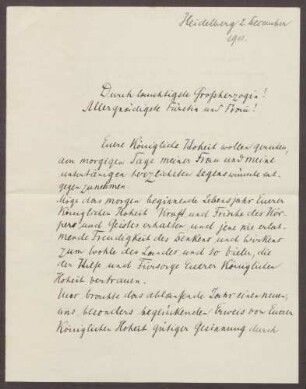 Heidelberg 2 December
1911.
Durchlauchtigste Großherzogin!
Allergnädigste Fürstin und Frau!
Euere Königliche Hoheit wollen geruhen,
am morgigen Tage meiner Frau und meine
unterthänigen herzlichsten Segenswünsche ent-
gegen zu nehmen.
Möge das morgen beginnende Lebensjahr Eurer
Königlichen Hoheit Kraft und Frische des Kör-
pers und Geistes erhalten und jene nie erlah-
mende Freudigkeit des Denkens und Wirkens
zum Wohle des Landes und so Vieler, die
der Hilfe und Fürsorge Euerer Königlichen
Hoheit vertrauen.
Uns brachte das ablaufende Jahr einen neuen,
uns besonders beglückenden Erweis von Euerer
Königlichen Hoheit gütiger Gesinnung durch